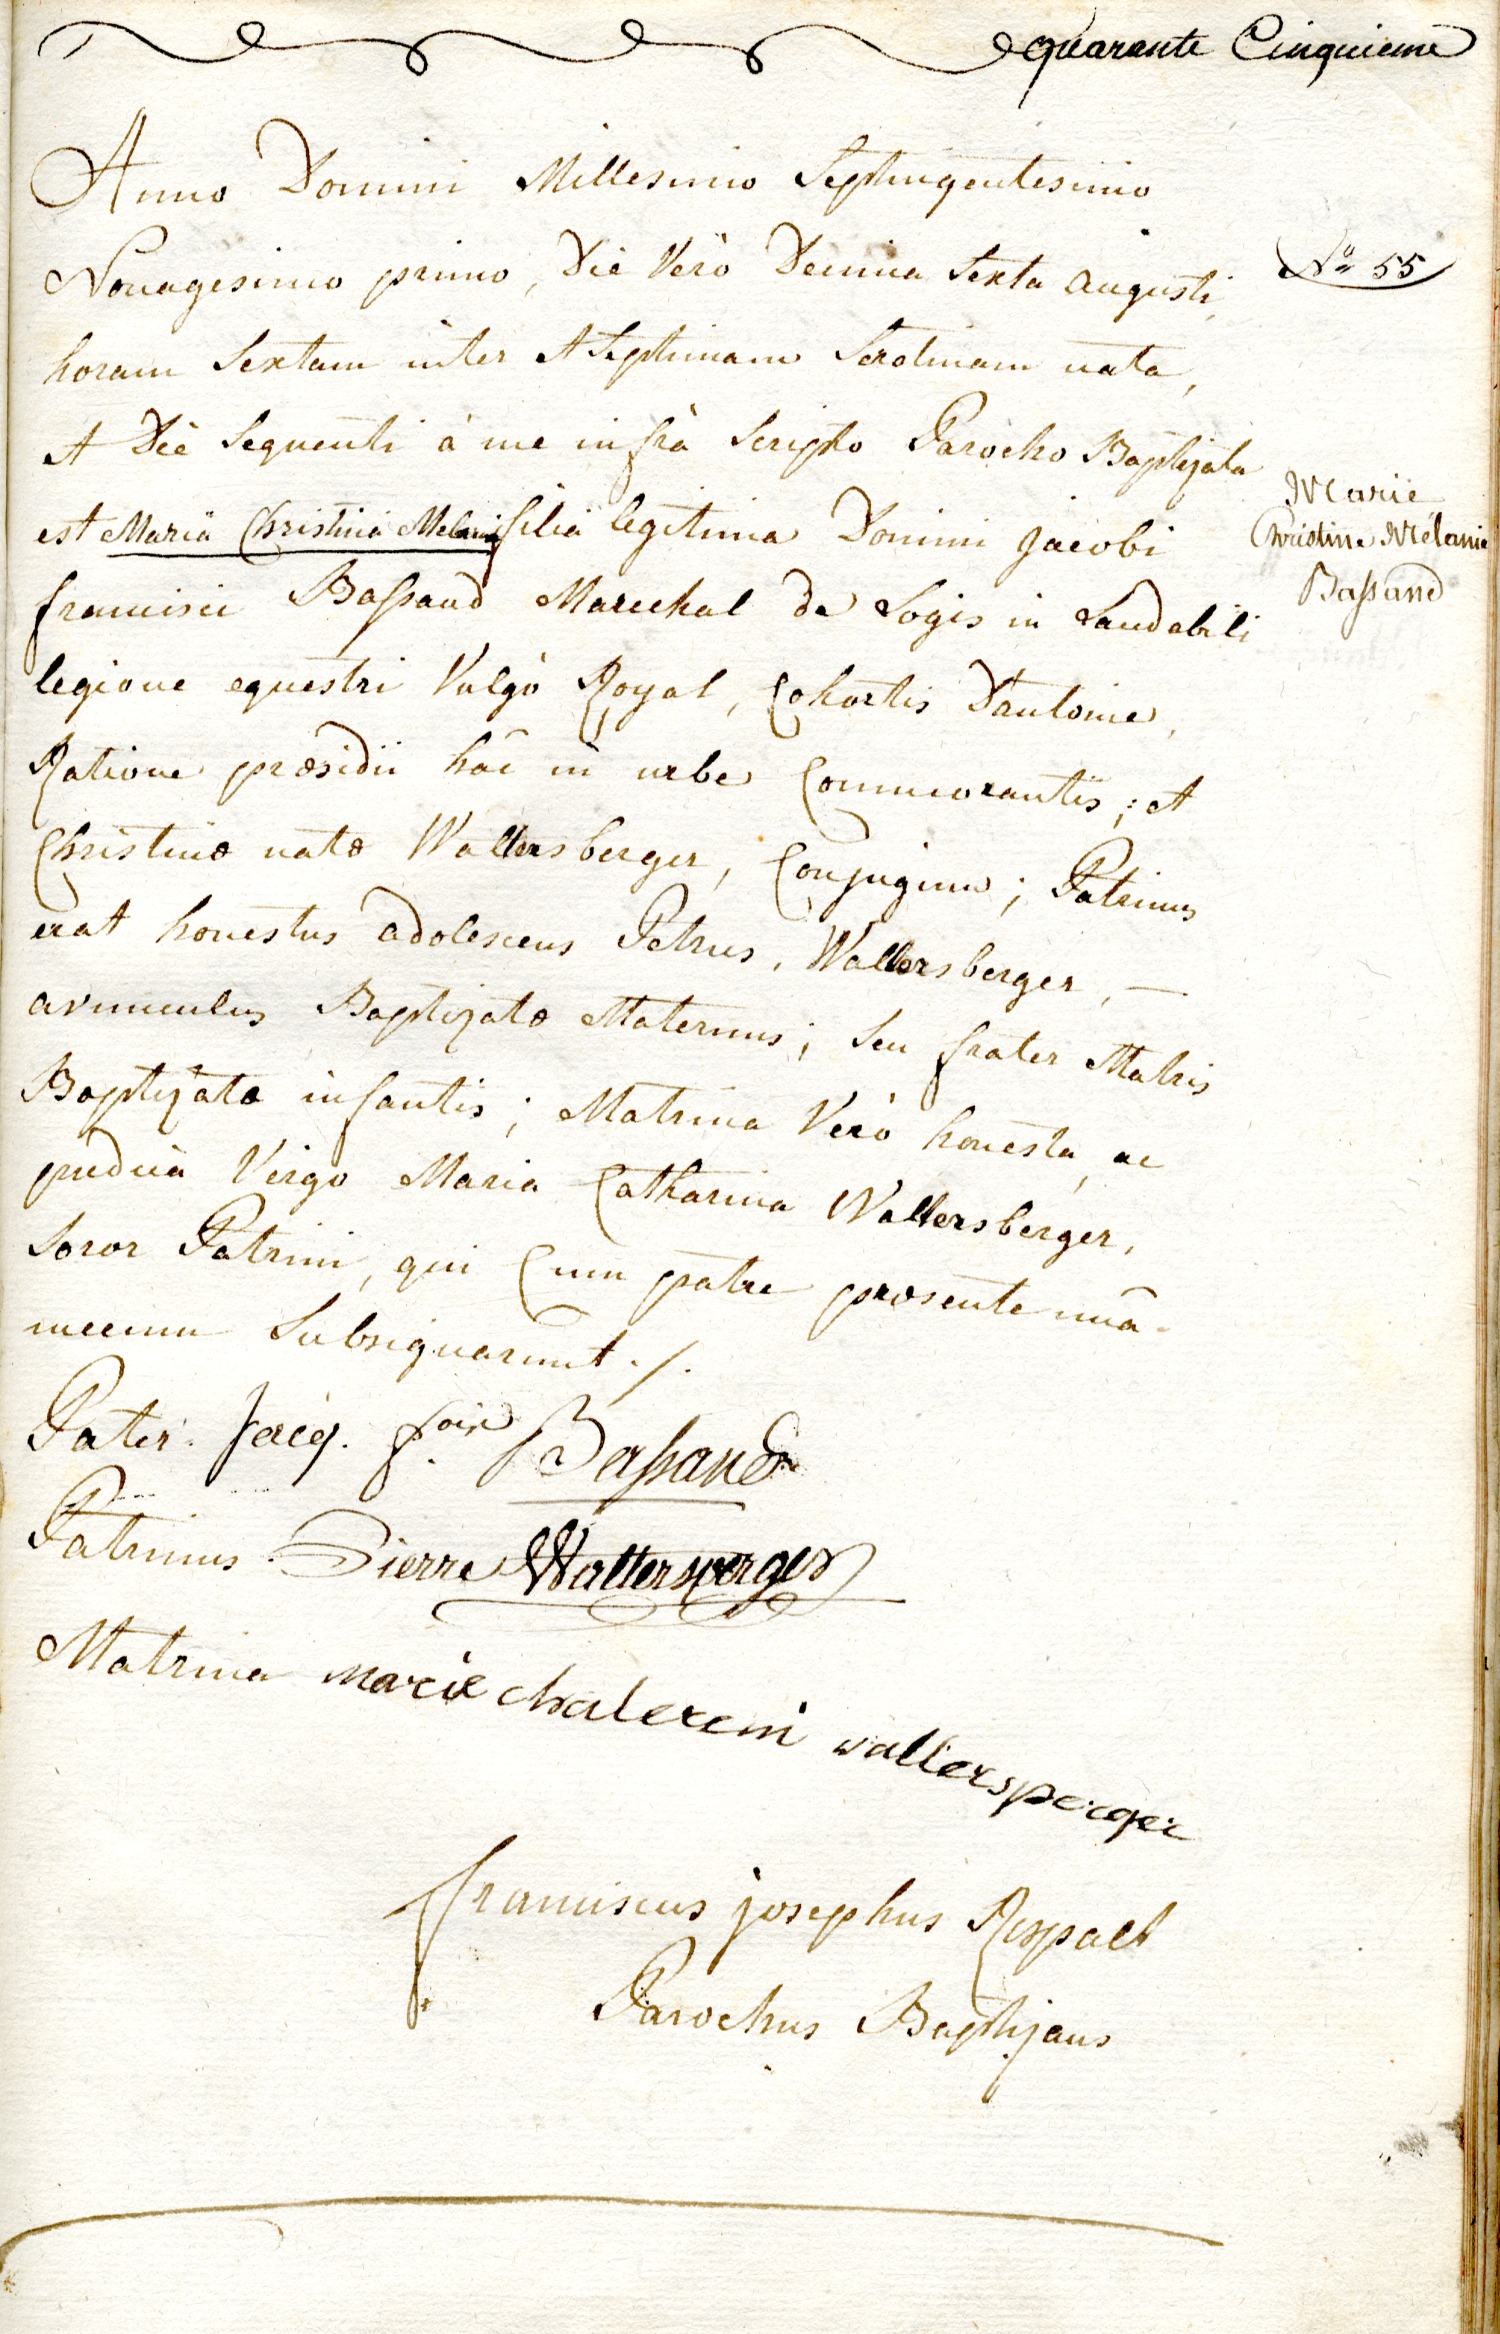 quarante Cinquieme
Anno Domini Millesimo Septingentesimo
Nonagesimo primo, Die Verò Decima Sexta augusti,
No 55
horam Sextam inter et Septimam Serotinam nata,
et Die Sequenti à me infrà Scripto Parocho Baptizata
est Maria Christina Melania filia legitima Domini jacobi
Marie
Christine Mélanie
Bassand
francisci Bassand Marechal de Logis in Laudabili
legione equestri Vulgò Royal, Cohortis D'antoine,
Ratione præsidii hâc in urbe Commorantis; et
Christinæ natæ Waltersberger, Conjugum; Patrinus
erat honestus adolescens Petrus, Waltersberger, —
avunculus Baptizatæ Maternus; Seu frater Matris
Baptizatæ infantis; Matrina Verò honesta, ac
pudica Virgo Maria Catharina Waltersberger,
Soror Patrini, qui Cum patre præsente unâ
mecum Subsignarunt ./.
Pater. Jacq. f.ois Bassand
Patrinus. Pierre Waltersperger
Matrina marie chatereni waltersperger
franciscus josephus
Parochus Baptizans